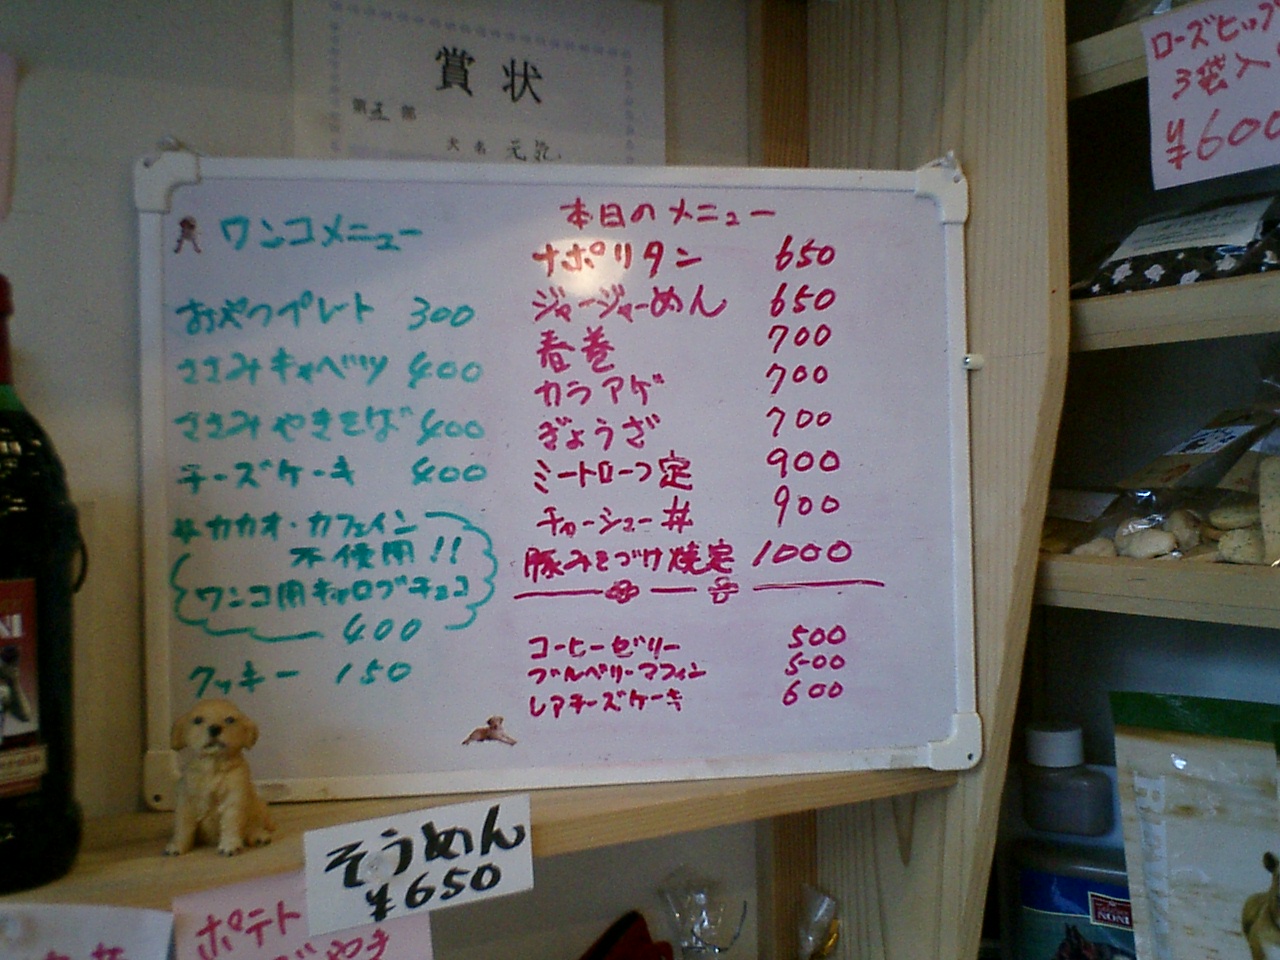 賞状
第五部
犬名 元記
ワンコメニュー
おやつプレート 300
ささみキャベツ 400
ささみやきそば 400
チーズケーキ 400
#カカオ・カフェイン
不使用!!
ワンコ用キャロブチョコ
400
クッキー 150
本日のメニュー
ナポリタン 650
ジャージャーめん 650
春巻 700
カラアゲ 700
ぎょうざ 700
ミートローフ定 900
チャーシュー丼 900
豚みそづけ焼定 1000
コーヒーゼリー 500
ブルベリーマフィン 500
レアチーズケーキ 600
そうめん
¥650
ポテト
ローズヒップ
3袋入
¥600
NONI